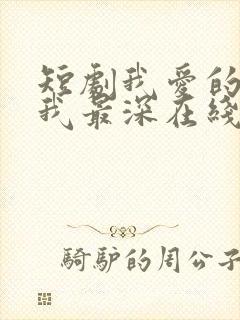 短劇我愛的
我最深在綫
騎驢的周公子